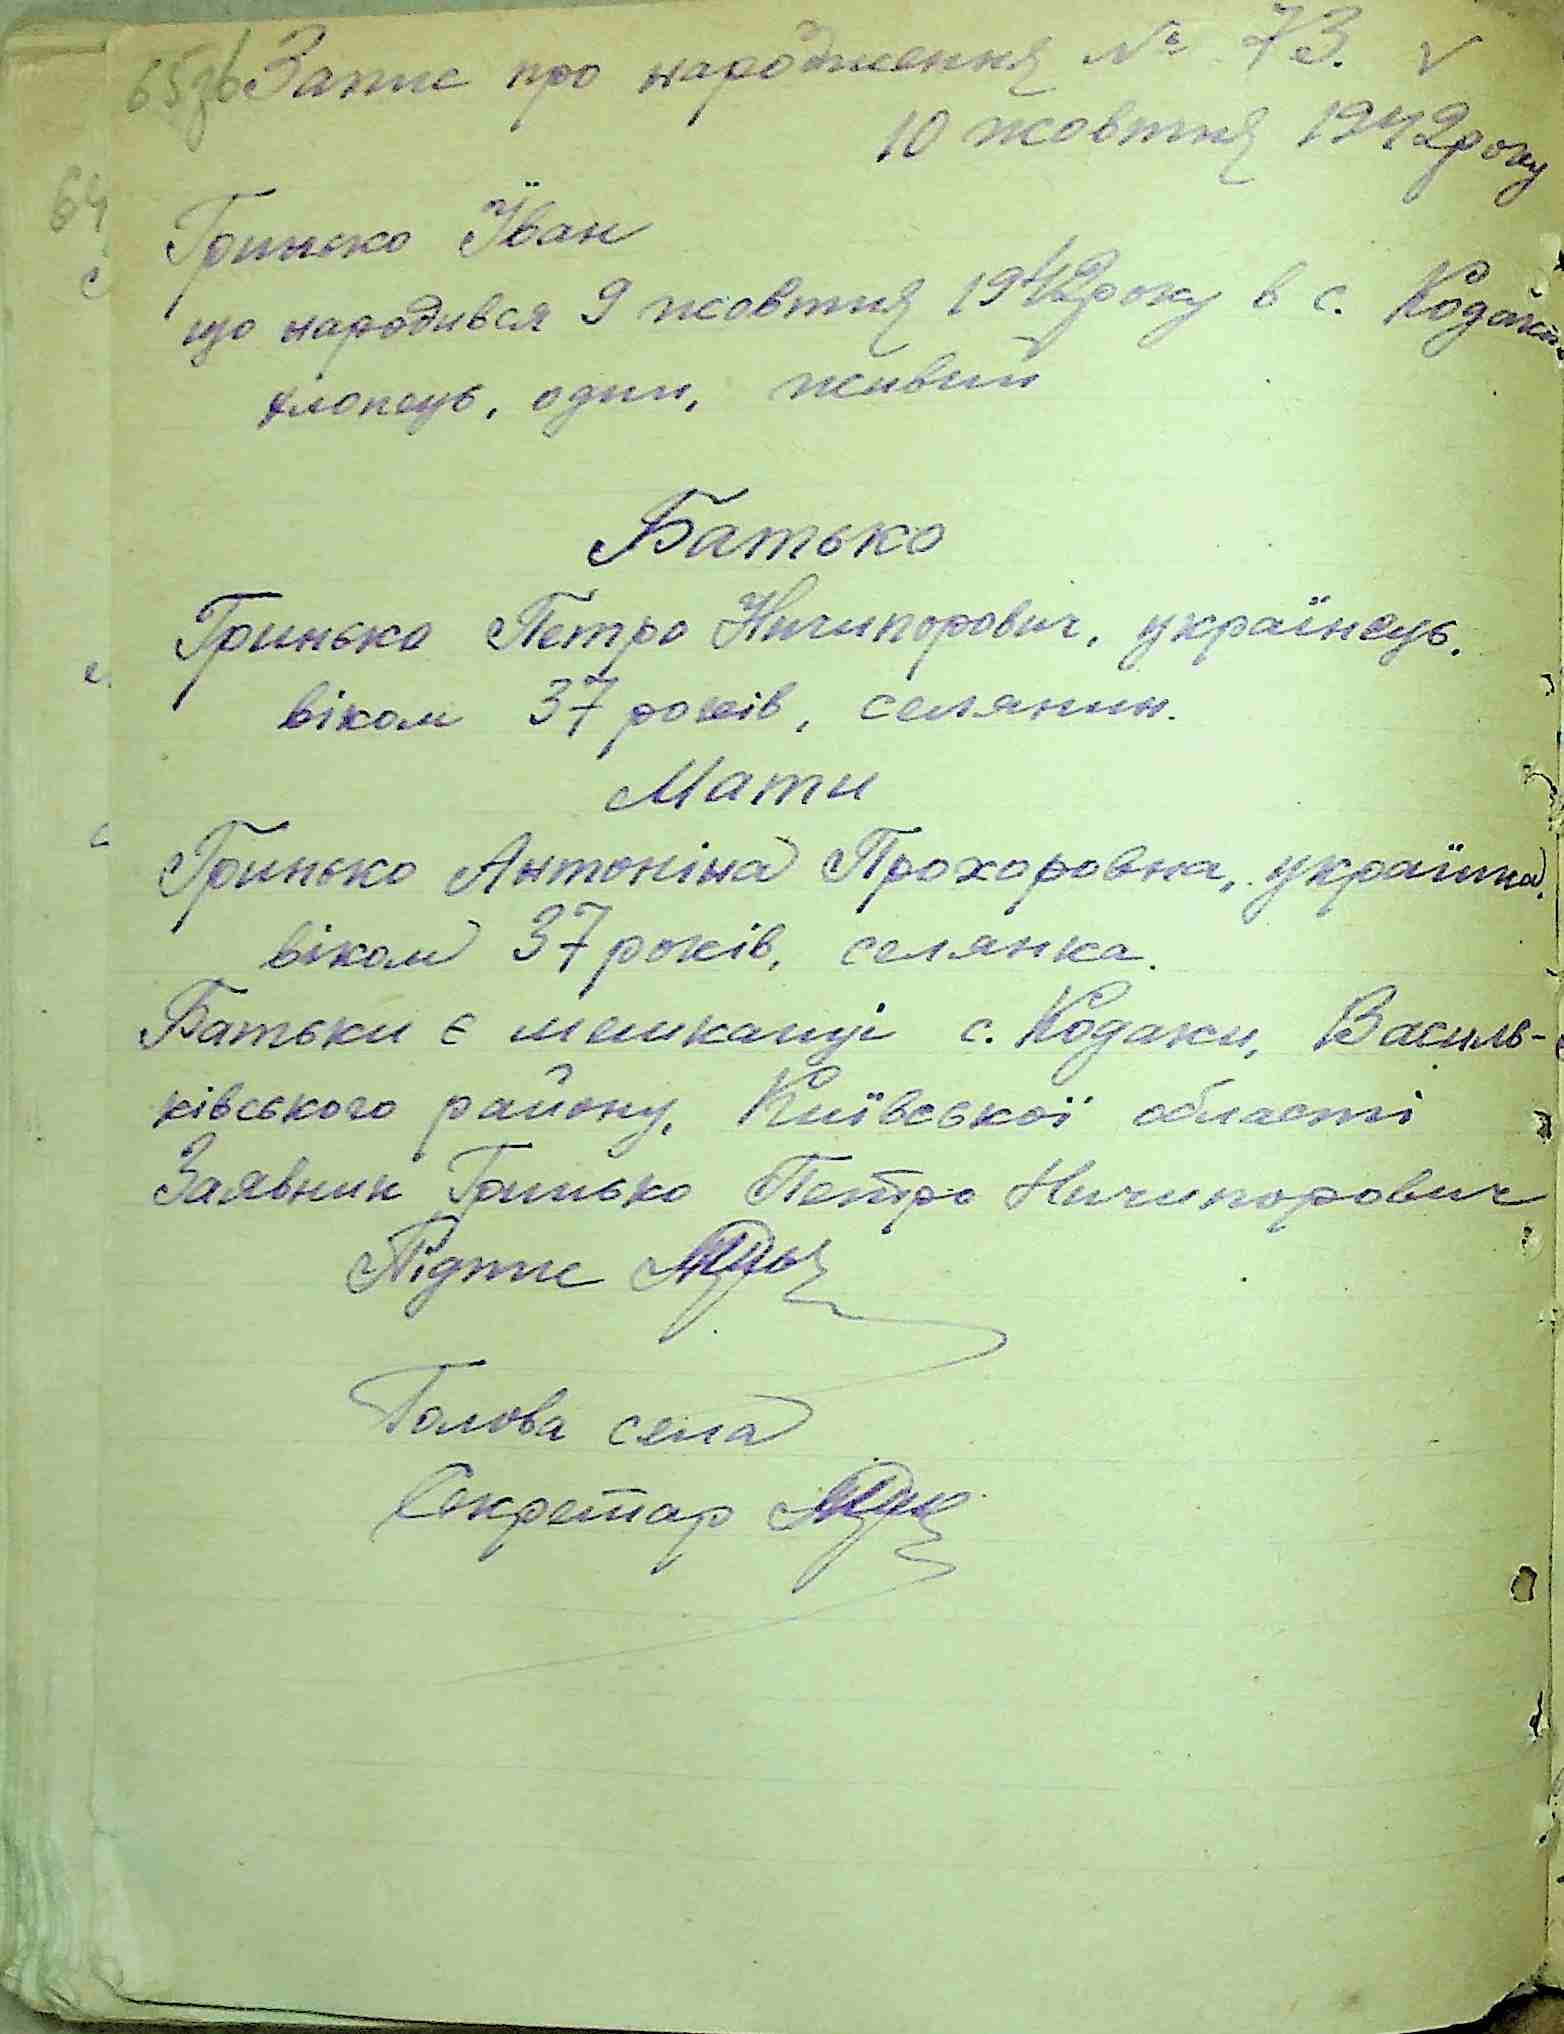 65зв Запис про народження № 73. v
10 жовтня 1942 року
64
Гринько Їван
що народився 9 жовтня 1942 року в с. Кодаки
хлопець, один, живий
Батько
Гринько Петро Ничипорович, українець,
віком 37 років, селянин.
Мати
Гринько Антоніна Прохоровна, українка,
віком 37 років, селянка.
Батьки є мешканці с. Кодаки, Василь-
ківського району, Київської области
Заявник Гринько Петро Ничипорович
Підпис
Голова села
Секретар